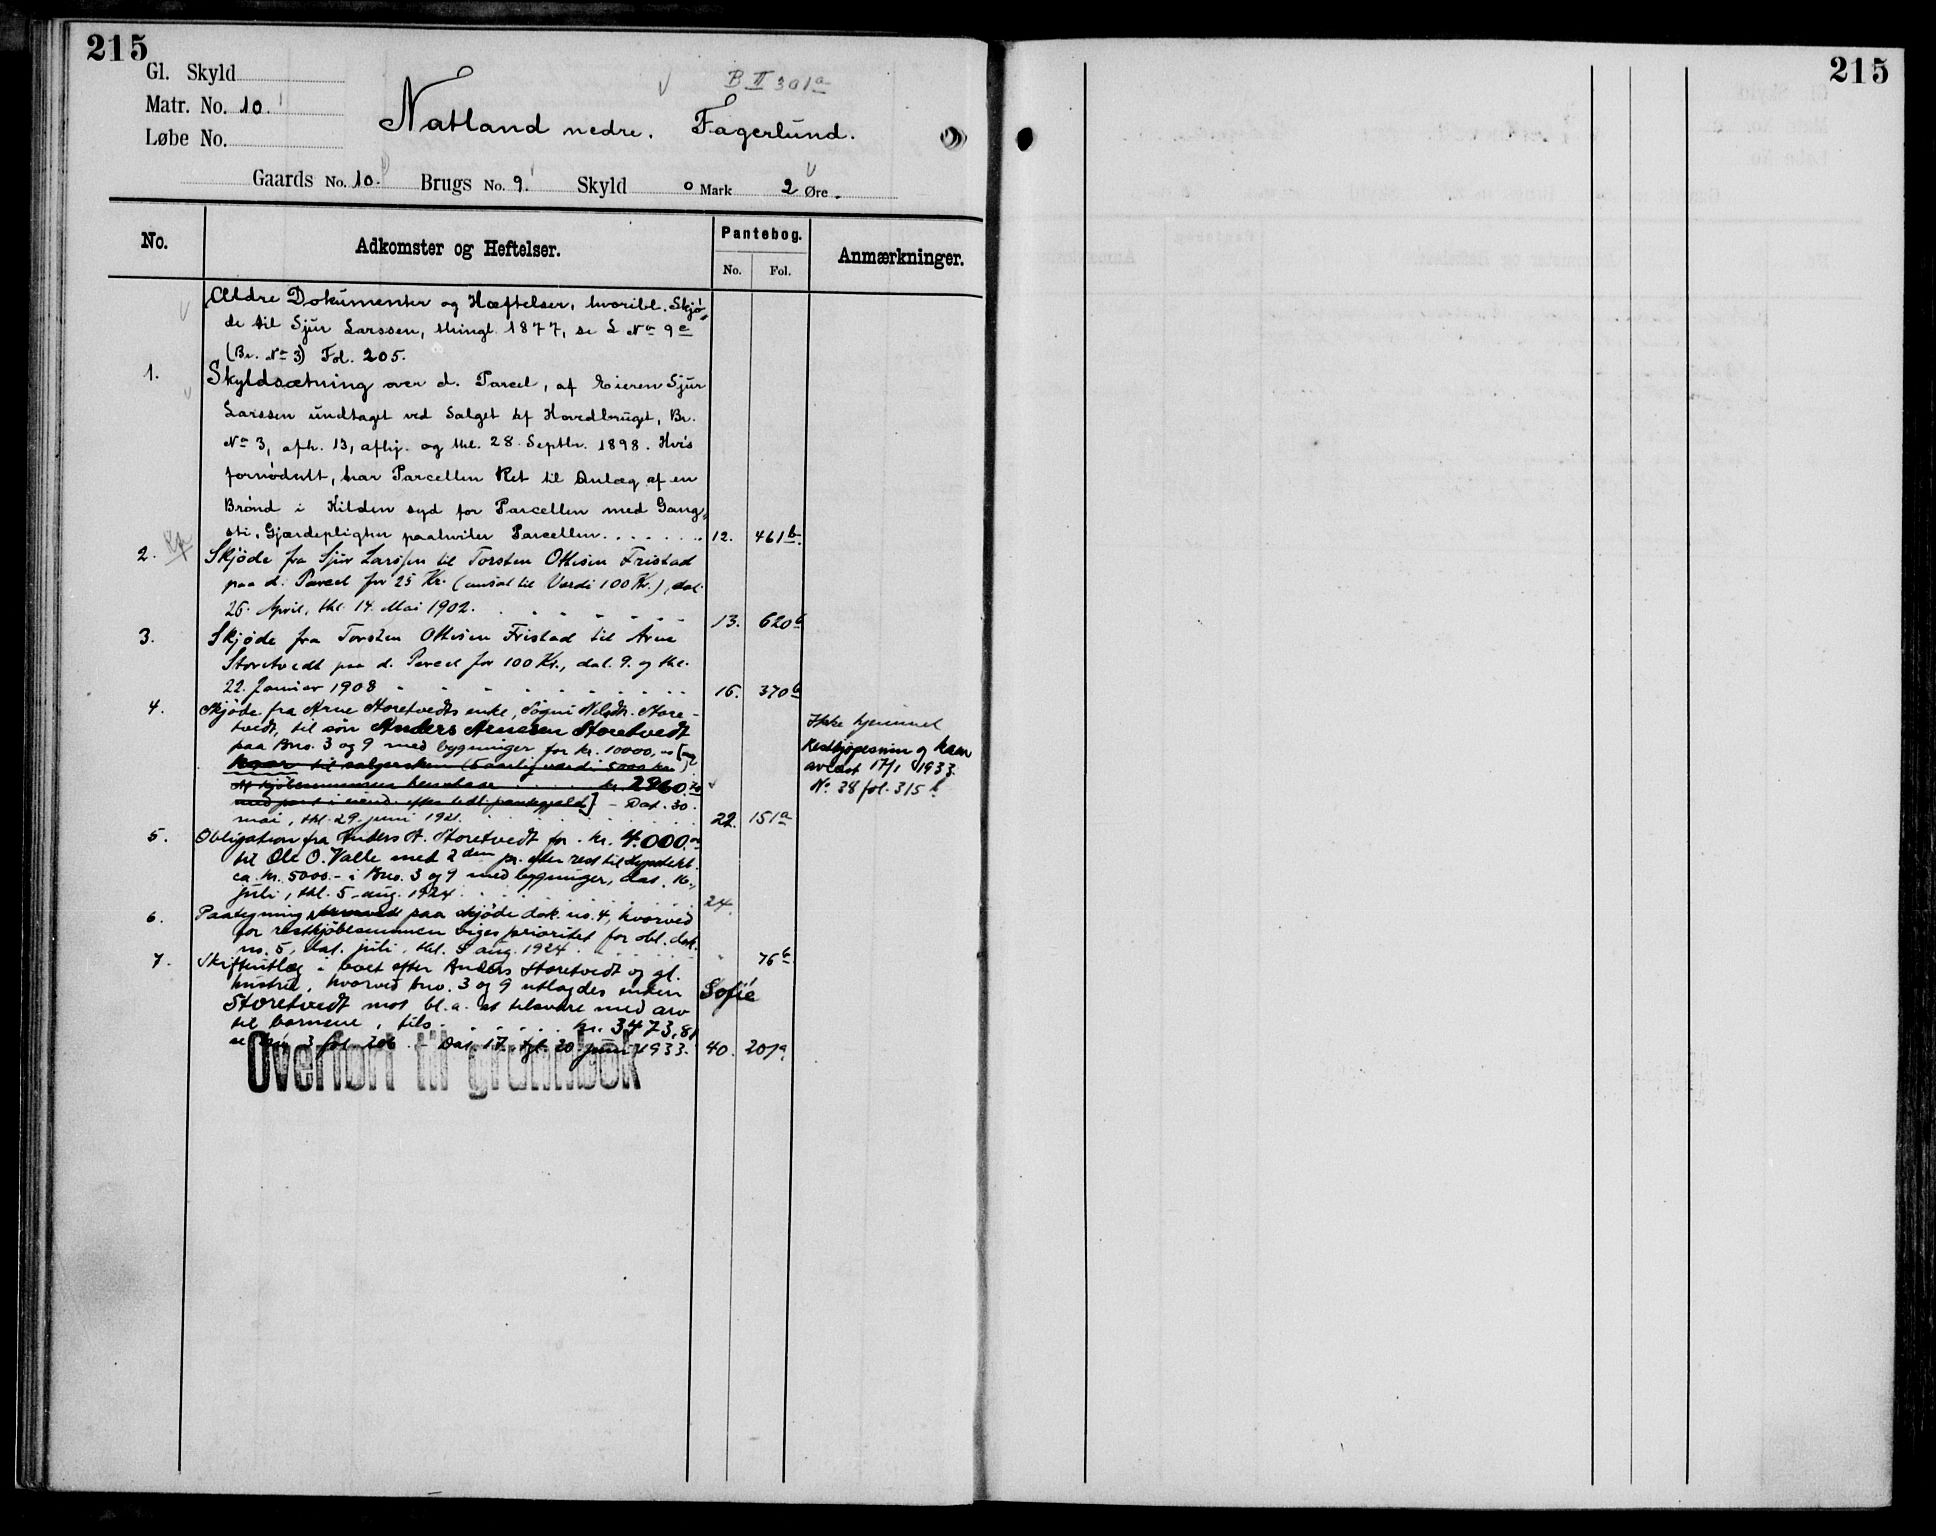 215
Gl. Skyld
Matr. No. 10.
Løbe No.
B II 301a
Natland nedre. Fagerlund.
Gaards No. 10. Brugs No. 9. Skyld 0 Mark 2 Øre.
No. Adkomster og Heftelser. Pantebog. No. Fol. Anmærkninger.
Ældre Dokumenter og Hæftelser, hvoribl. Skjø-
de til Sjur Larssen, thingl. 1877, se L No 9c
(Br. No 3) Fol. 205.
1. Skyldsætning over d. Parcel, af Eieren Sjur
Larssen undtaget ved Salget af Hovedbruget, Br.
No 3, afh. 13, afhj. og thl. 28 Septbr. 1898. Hvis
fornødent, har Parcellen Ret til Anlæg af en
Brønd i Kilden syd for Parcellen med Gang-
sti. Gjærdepligten paahviler Parcellen. 12. 461b.
2. Skjøde fra Sjur Larssen til Torsten Ottesen Fristad
paa d. Parcel for 25 Kr. (ansat til Værdi 100 Kr.), dat.
26. April, thl. 14. Mai 1902. 13. 620b
3. Skjøde fra Torsten Ottesen Fristad til Arne
Storetvedt paa d. Parcel for 100 Kr., dat. 9. og thl.
22. Januar 1908 16. 370b
4. Skjøde fra Arne Storetvedts enke, Søgni Nilsdtr. Store-
tvedt, til søn Anders Arnesen Storetvedt
paa Bno. 3 og 9 med bygninger for kr. 10000,- [og
kaar til sælgersken (5 aarlig værdi 5000 kr.)
Af kjøbesummen henstaar kr. 2260.20
med pant i eiend. efter tidl. pantegjæld] - Dat. 30.
mai, thl. 29. juni 1921. 22. 151a
Ikke hjemmel
Restkjøpesum og kaar
avlæst 17/1 1933.
No. 38 fol. 315b
5. Obligation fra Anders A. Storetvedt for kr. 4.000.00
til Ole O. Valle med 2den pr. efter rest til
ca. kr. 5000.- i Bno. 3 og 9 med bygninger, dat. 16.
juli, thl. 5. aug. 1924. 24.
6. Paategning paa skjøde dok. no. 4, hvorved
for restkjøbesummen viges prioritet for obl. dok.
no. 5, dat. juli, thl. 5 aug. 1924. 76b.
7. Skifteutlæg i boet efter Anders Storetvedt og gl.
hustru, hvorved bno. 3 og 9 utlagdes enken Sofie
Storetvedt mot bl. a. at tilsvare med arv
til barnene, tils. kr. 3473,81
se bno 3 fol. 206. - Dat. 17. tgl. 20 juni 1933. 40. 207a
Overført til grunnbok
215